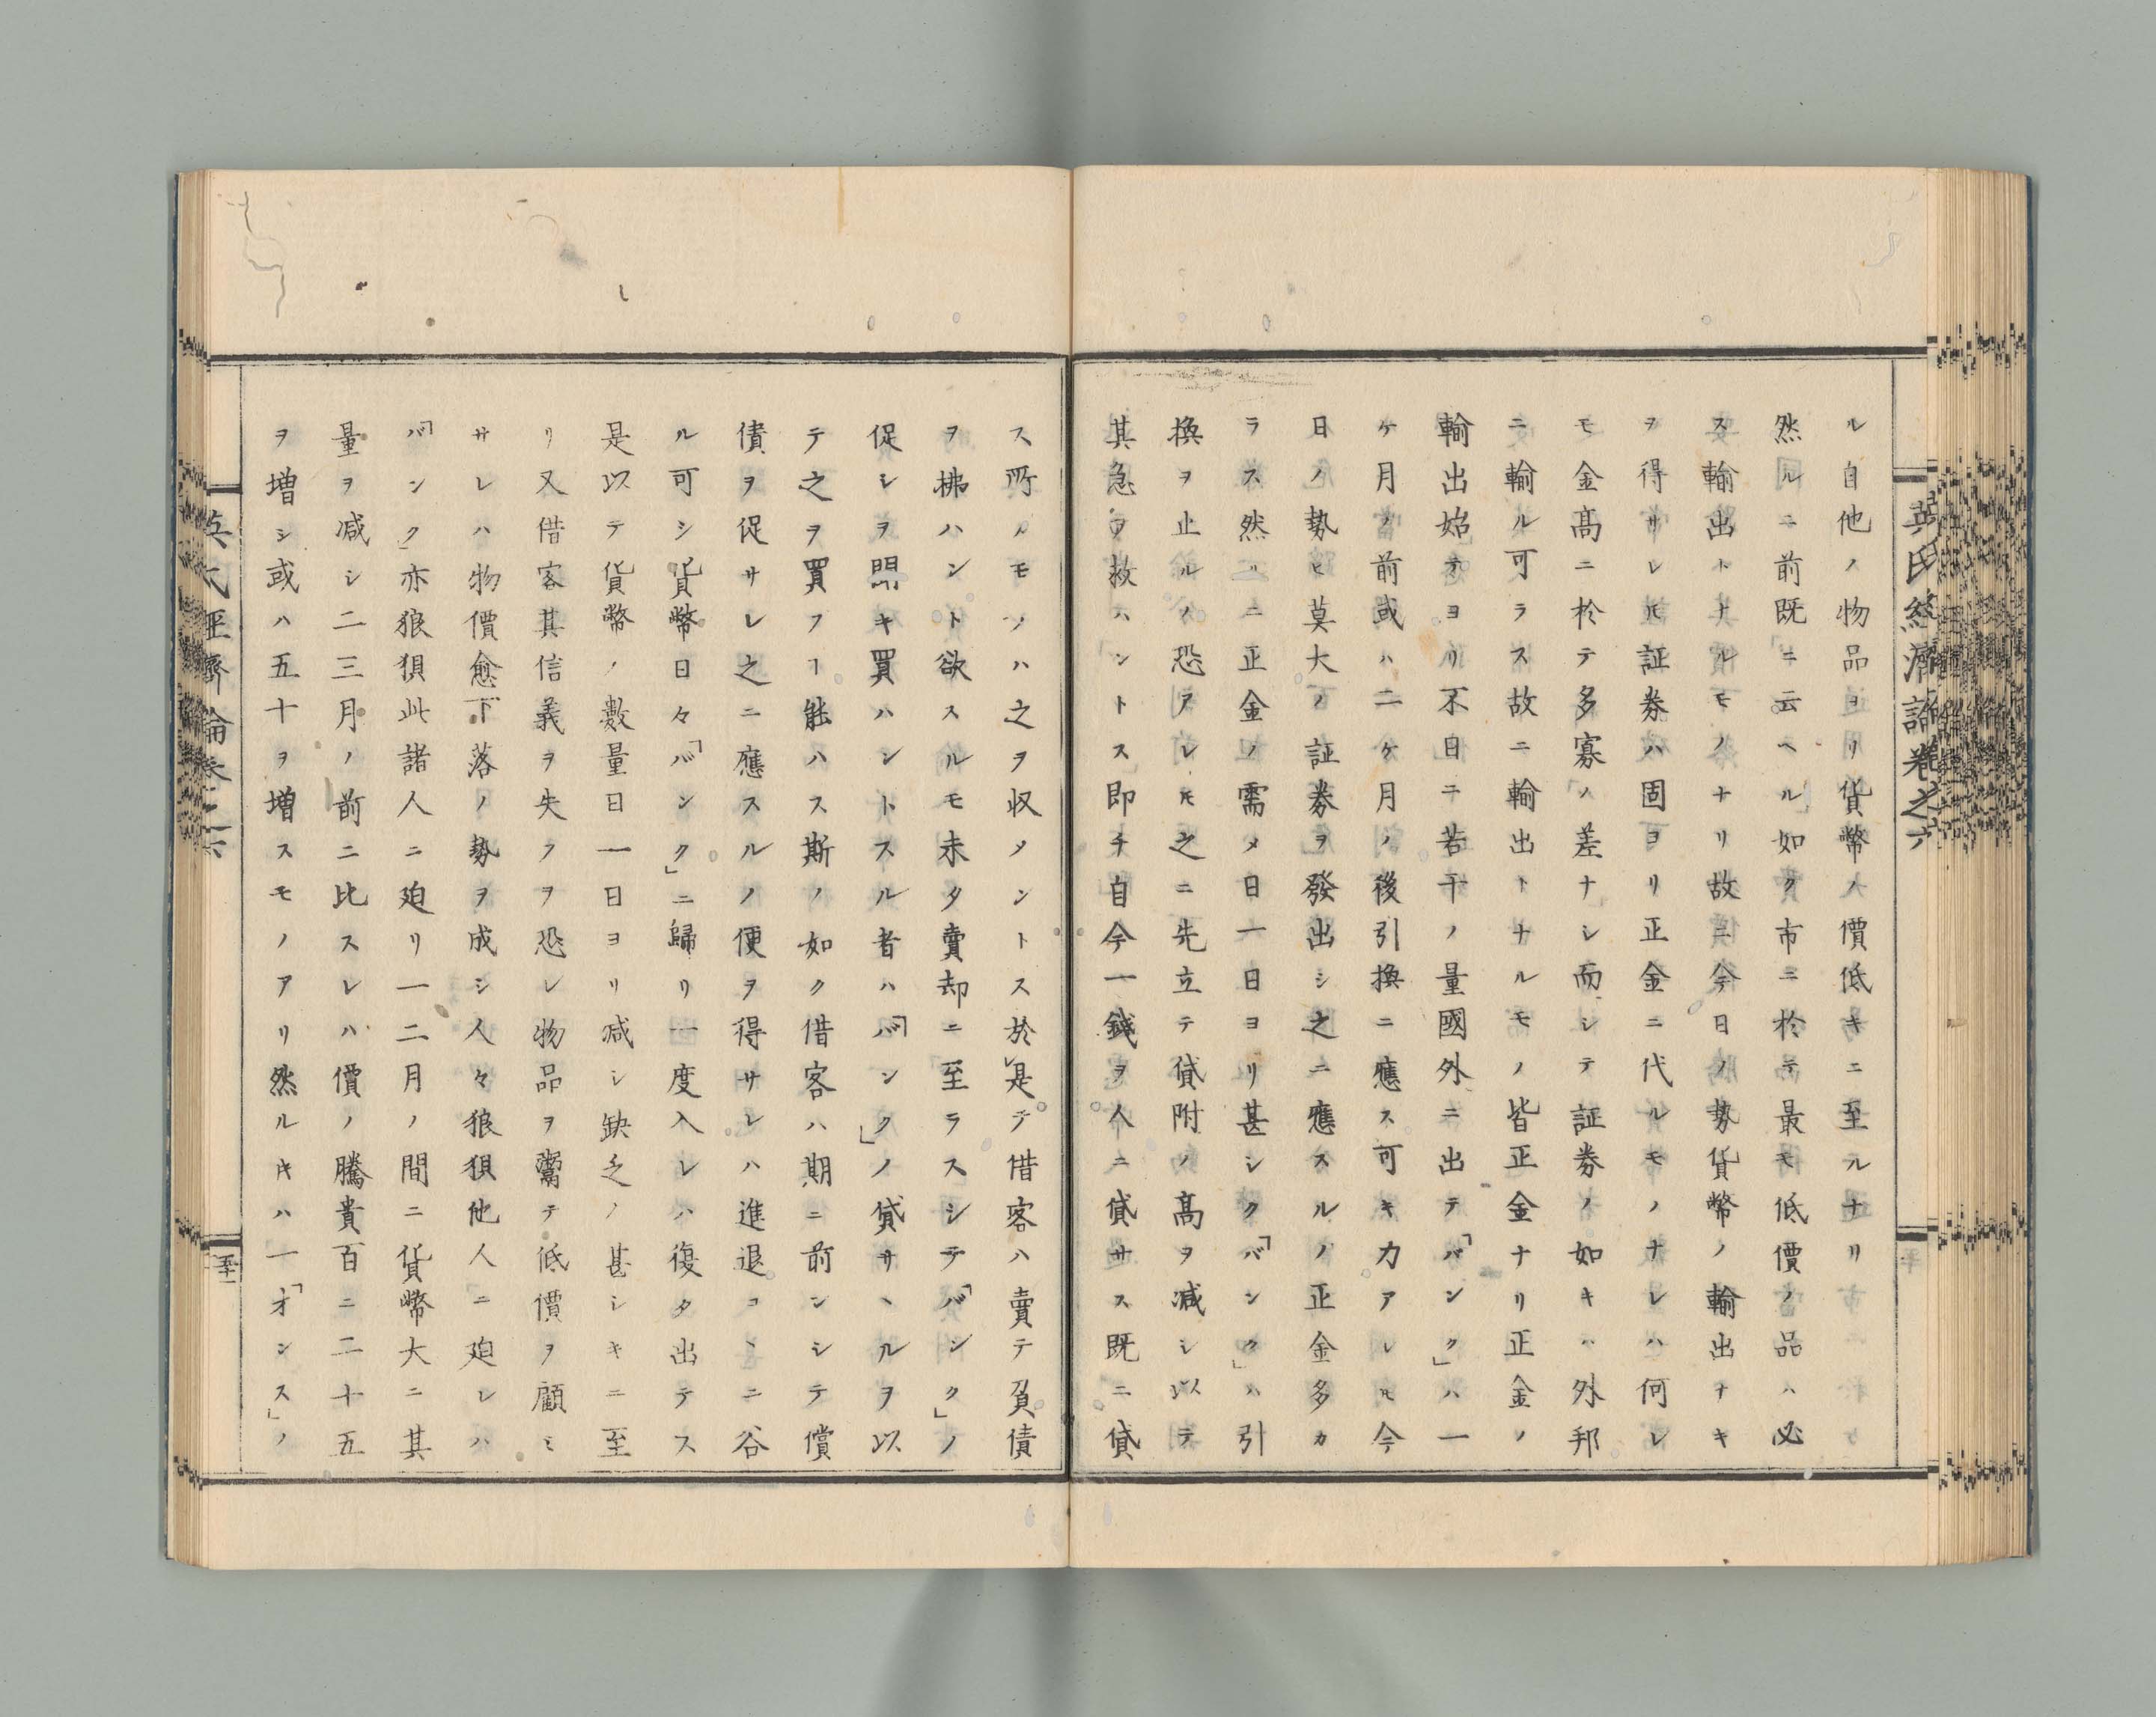 英氏経済論巻之六
ル自他ノ物品ヨリ貨幣ノ價低キニ至ルナリ
然ルニ前既ニ云ヘル如ク市ニ於テ最モ低價ノ品ハ必
ス輸出トナルモノナリ故ニ今日ノ勢貨幣ノ輸出ナキ
ヲ得サレ𪜈証券ハ固ヨリ正金ニ代ルモノナレハ何レ
モ金髙ニ於テ多寡ノ差ナシ而シテ証券ノ如キハ外邦
ニ輸ル可ラス故ニ輸出トナルモノ皆正金ナリ正金ノ
輸出始テヨリ不日ニ若干ノ量國外ニ出テ「バンク」ハ一
ケ月ノ前或ハ二ケ月ノ後引換ニ應ス可キカアレ𪜈今
日ノ勢ヒ莫大ノ証券ヲ發出シ之ニ應スルノ正金多カ
ラス然リニ正金ノ需メ日一日ヨリ甚シク「バンク」ハ引
換ヲ止ルノ恐アレ𪜈之ニ先立テ貸附ノ髙ヲ減シ以テ
其急ヲ救ハントス即チ自今一錢ヲ人ニ貸サス既ニ貸
ス所ノモノハ之ヲ収メントス於是テ借客ハ賣テ負債
ヲ拂ハント欲スルモ未タ賣却ニ至ラスシテ「バンク」ノ
促シヲ聞キ買ハントスル者ハ「バンク」ノ貸サヽルヲ以
テ之ヲ買フヿ能ハス斯ノ如ク借客ハ期ニ前ンシテ償
債ヲ促サレ之ニ應スルノ便ヲ得サレハ進退コヽニ谷
ル可シ貨幣日々「バンク」ニ歸リ一度入レハ復タ出テス
是以テ貨幣ノ數量日一日ヨリ減シ缺乏ノ甚シキニ至
リ又借客其信義ヲ失フヲ恐レ物品ヲ鬻テ低價ヲ顧ミ
サレハ物價愈下落ノ勢ヲ成シ人々狼狽他人ニ廹レハ
「バンク」亦狼狽此諸人ニ廹リ一二月ノ間ニ貨幣大ニ其
量ヲ減シ二三月ノ前ニ比スレハ價ノ騰貴百ニ二十五
ヲ増シ或ハ五十ヲ増スモノアリ然ルキハ一「オンス」ノ
英氏經濟論巻之六
五十